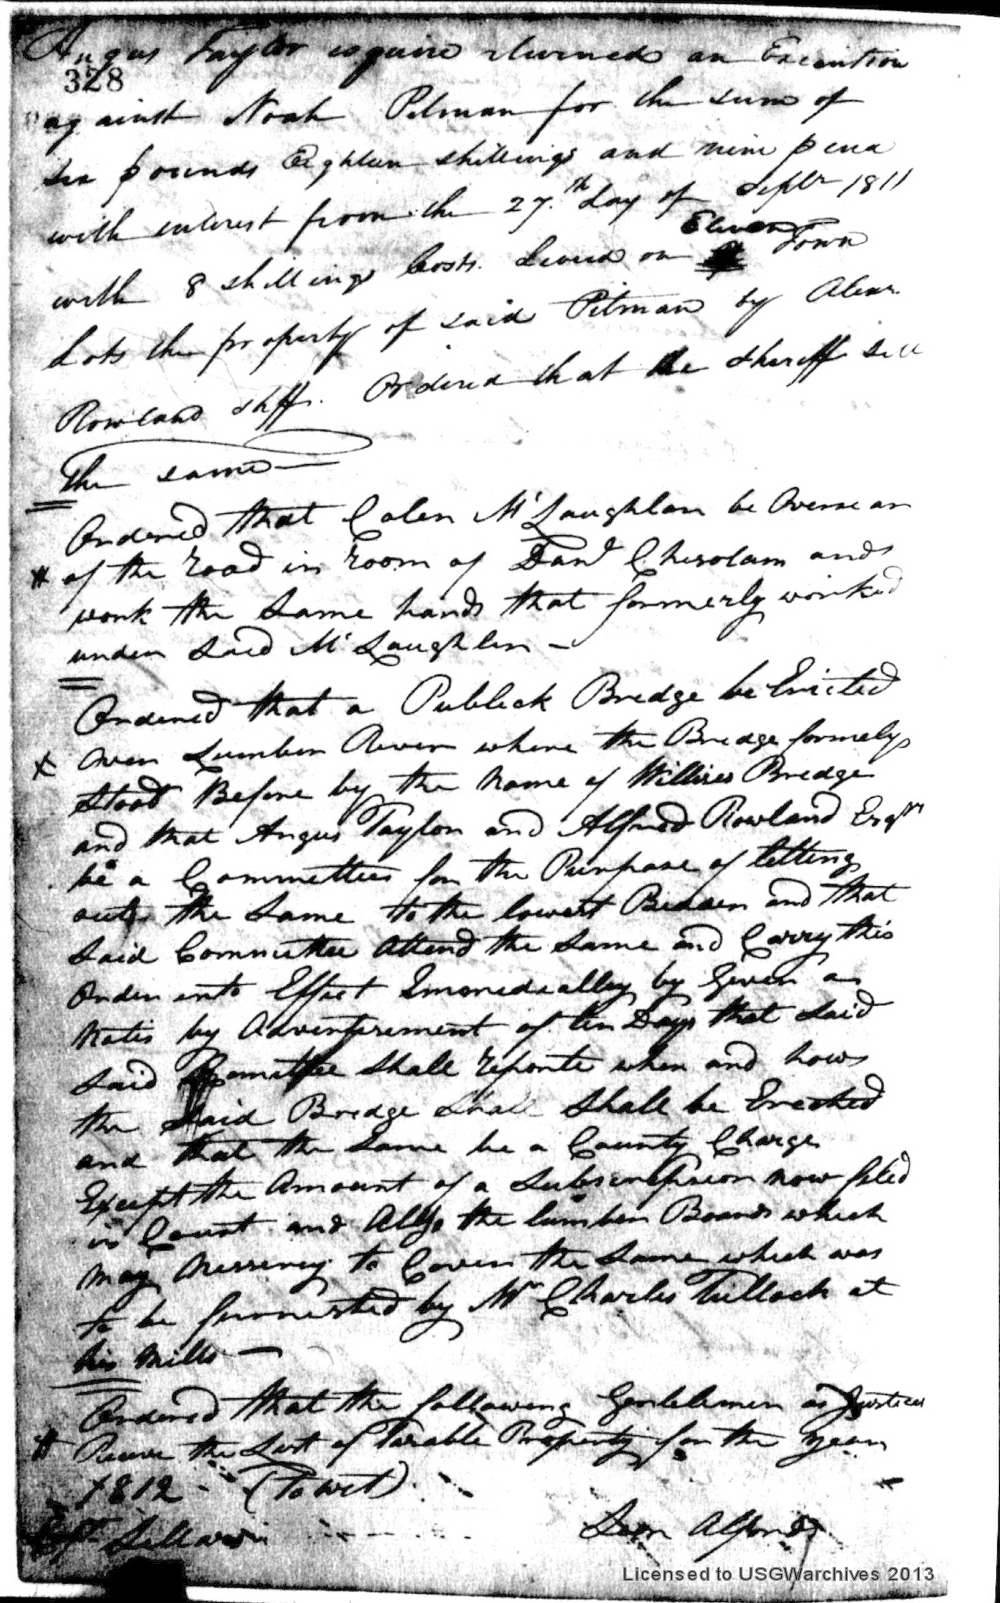 Angus Taylor esquire returned an Execution
328
against Noah Pitman for the sum of
six pounds Eighteen shillings and nine pence
with interest from the 27th day of Septbr 1811
with 8 shillings Costs. Levied on Eleven Town
Lots the property of said Pitman by Alexr
Rowland shff. Ordered that the sheriff sell
The same —
Ordered that Colen McLaughlan be Overseear
# of the road in room of Danl Chisolam and
work the Same hands that formerly worked
under Said McLaughlin —
Ordered that a Publick Bredge be Ericted
X over Lumber River where the Bredge formely
Stood Before by the Name of Willises Bredge
and that Angus Taylor and Alfred Rowland Esqrs
be a Committee for the Purpose of letting
out the Same to the lowest Bidder and that
Said Committee Attend the Same and Carry this
Order into Effect Immedealley by Given a
Notis by Advertisement of ten Days that Said
Said Comettee Shall reporte when and how
the Said Bredge Shall Shall be Erected
and that the Same be a County Charge
Except the Amount of a Subscripsion now filed
in Court and Allso the lumber Boards which
may Nessesery to Cover the Same which was
to be furnished by Mr Charles Tullock at
his Mills —
Ordered that the following Gentlemen as Justices
# the List of Taxable Property for the year
1812 - (To wit)
Licensed to USGWarchives 2013